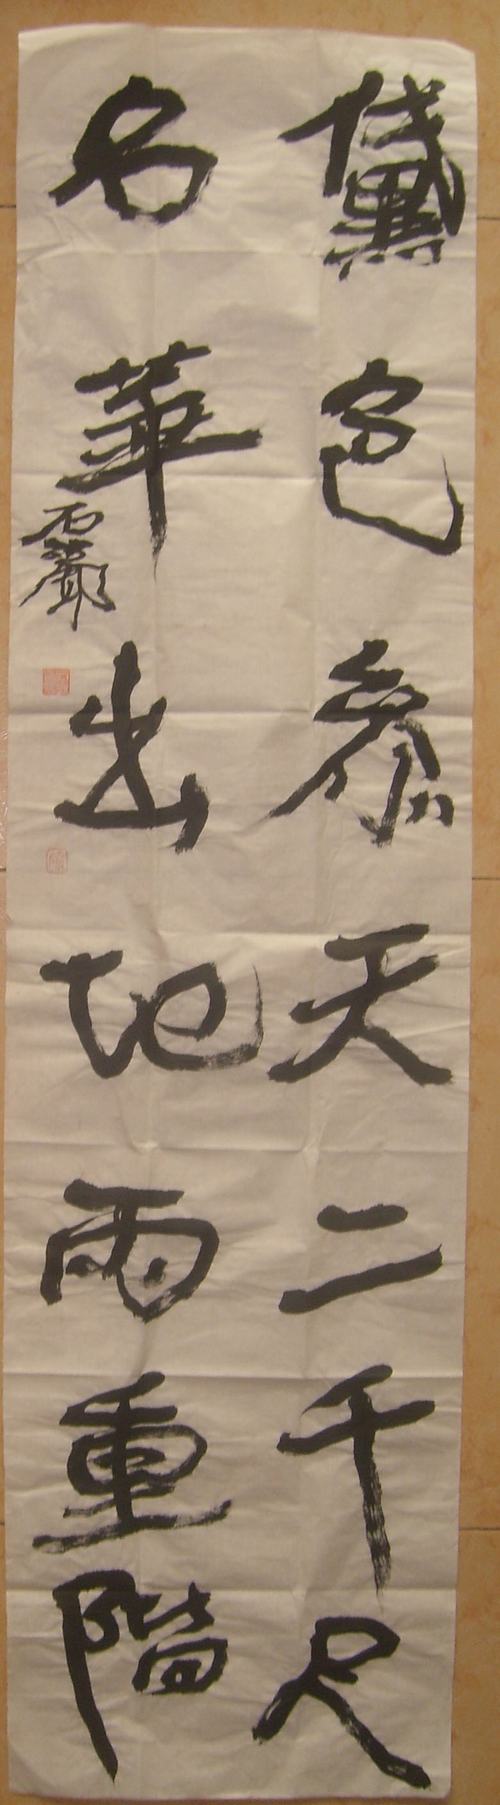 黛色參天二千尺
名華出地兩重階
石巖